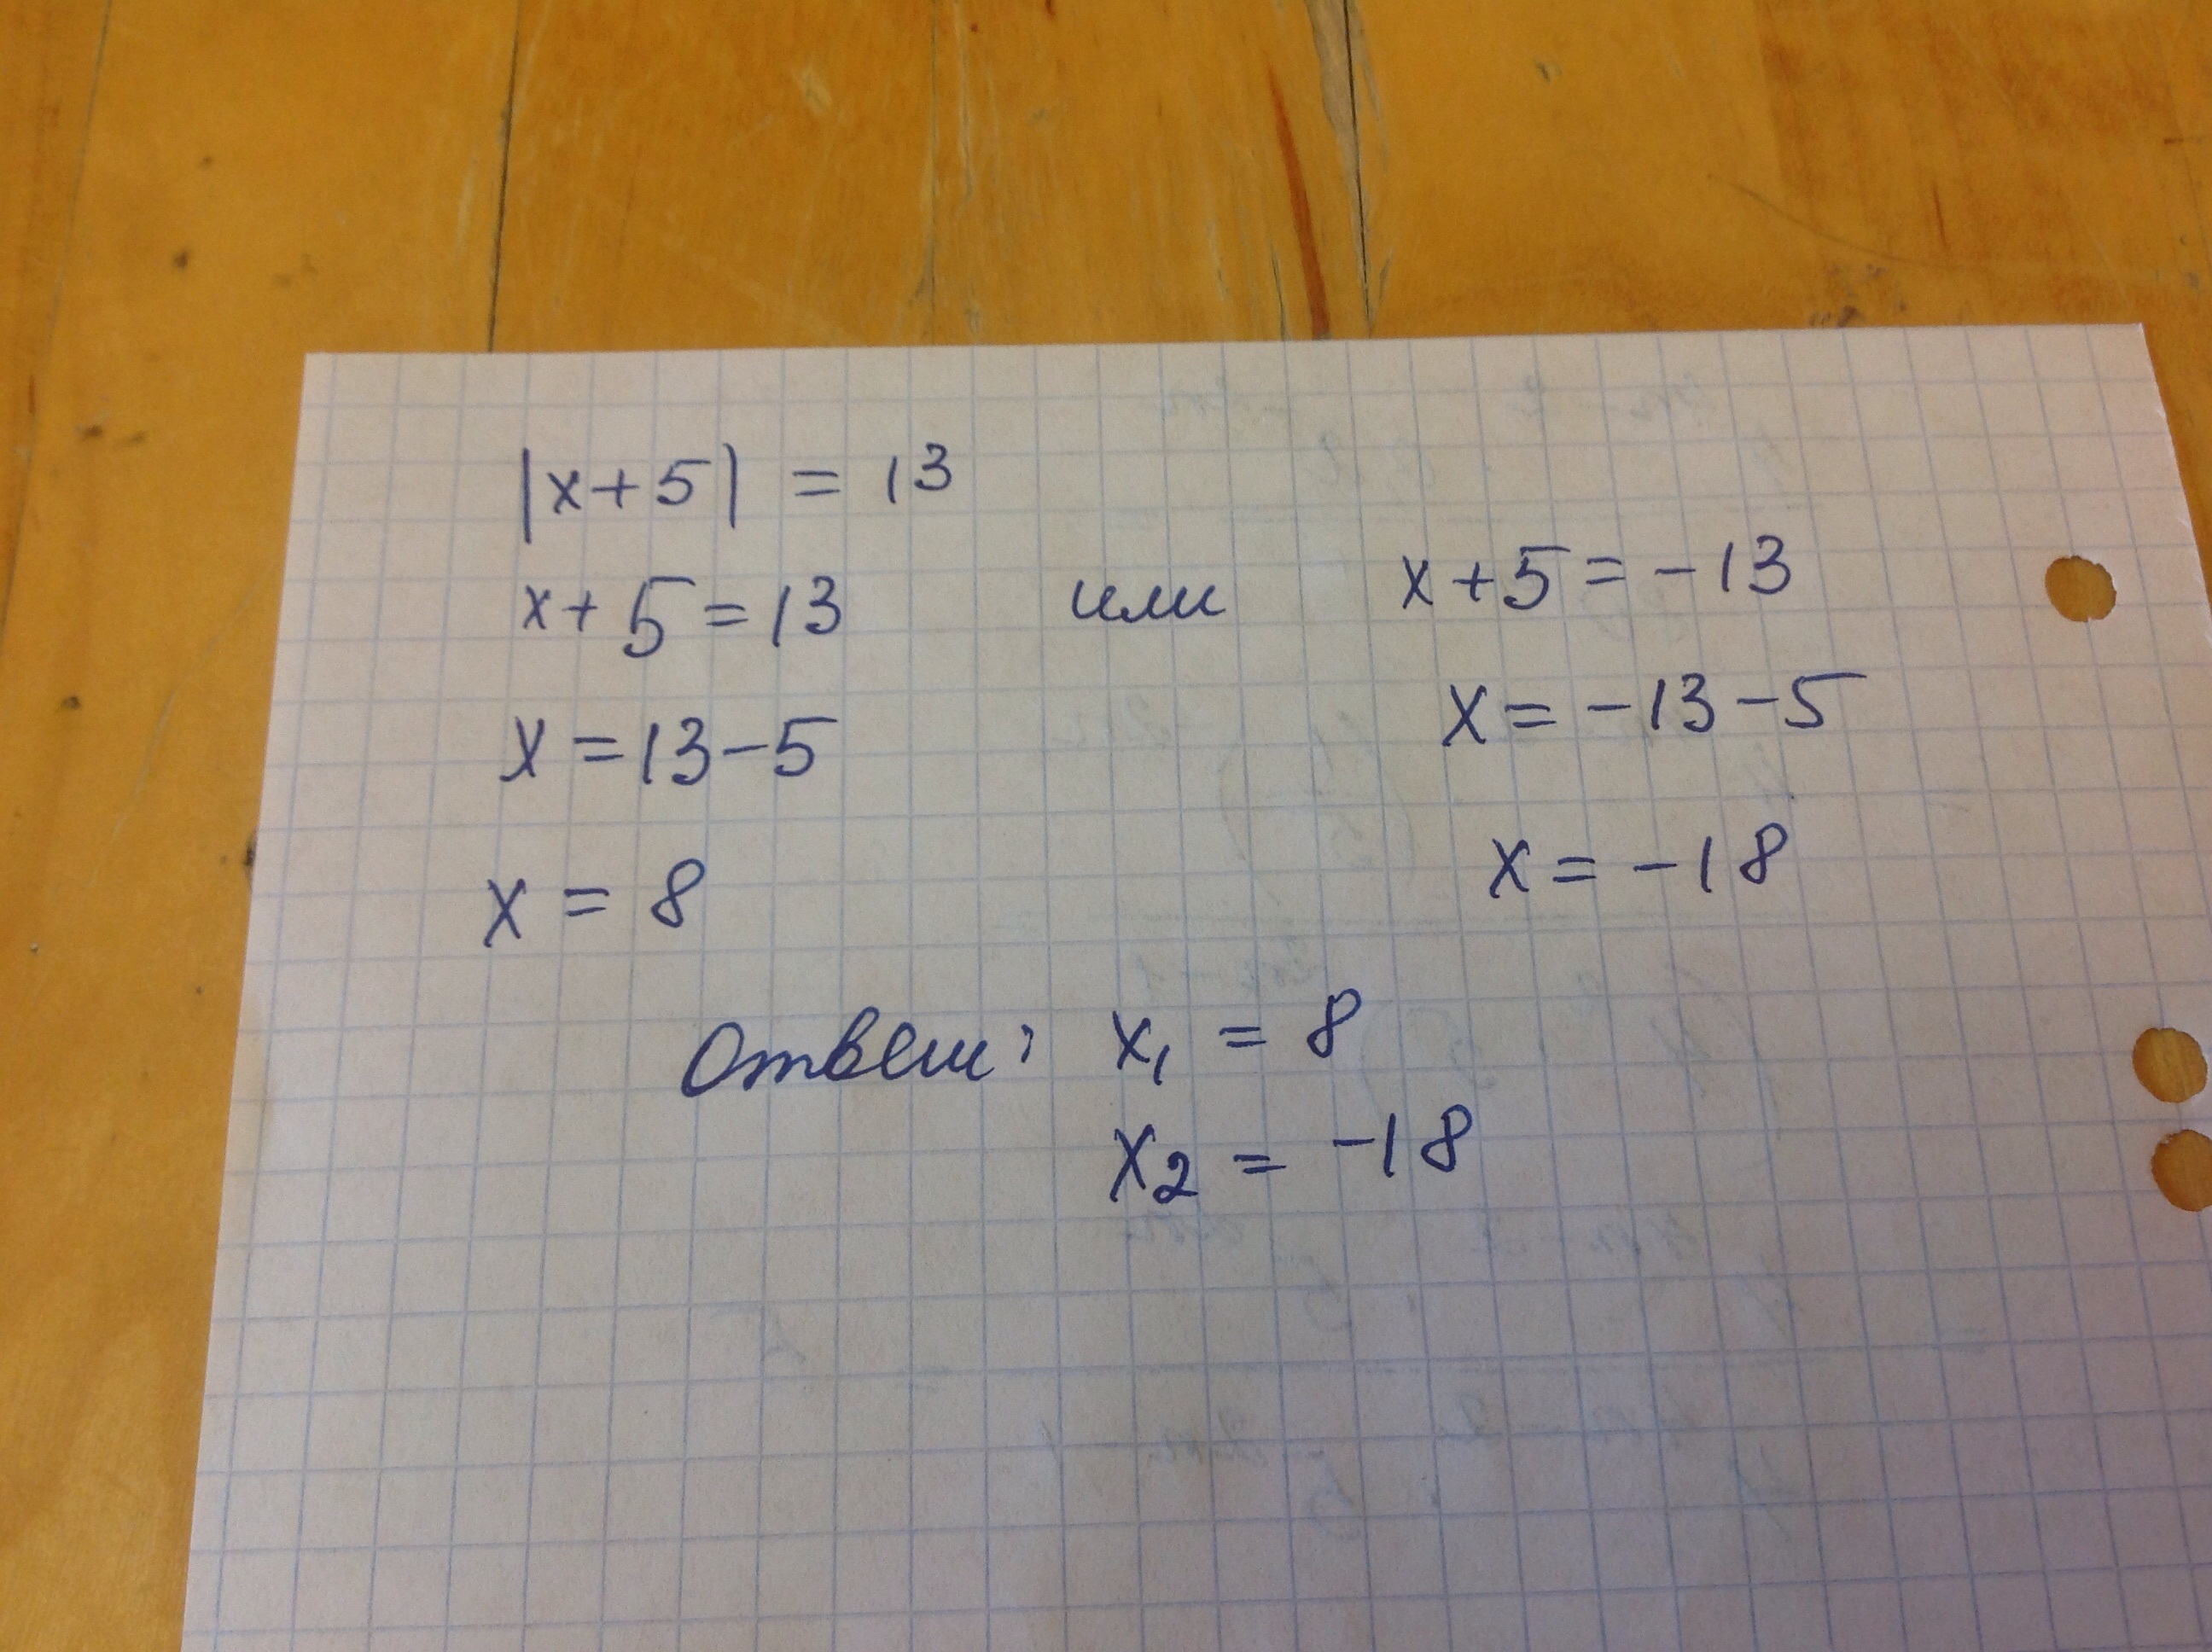 |x+5| = 13
x+5=13 или x+5=-13
x=13-5 x=-13-5
x=8 x=-18
Ответ: x₁ = 8
x₂ = -18